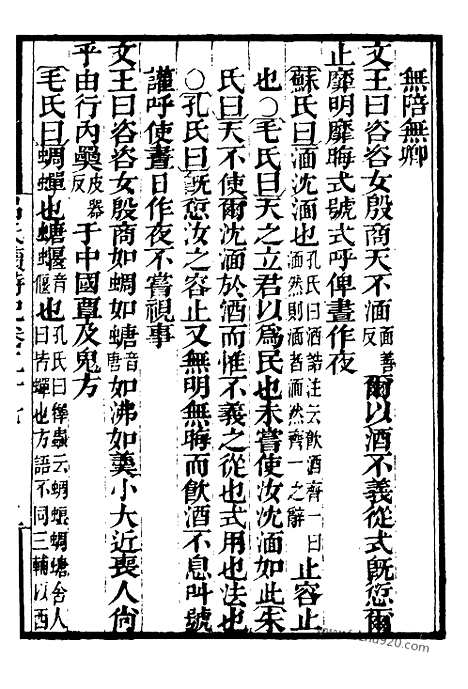 無陪無卿
文王曰咨咨女殷商天不湎面善反爾以酒不義從式旣愆爾
止靡明靡晦式號式呼俾晝作夜
蘇氏曰湎沈湎也孔氏曰酒誥注云飲酒齊一曰湎然則湎者湎然齊一之辭止容止
也○毛氏曰天之立君以爲民也未嘗使汝沈湎如此朱
氏曰天不使爾沈湎於酒而惟不義之從也式用也法也
○孔氏曰旣愆汝之容止又無明無晦而飲酒不息叫號
讙呼使晝日作夜不嘗視事
文王曰咨咨女殷商如蜩如螗音唐如沸如羹小大近喪人尙
乎由行內奰皮器反于中國覃及鬼方
毛氏曰蜩蟬也螗蝘音偃也孔氏曰釋蟲云蜩蜋蜩螗舍人曰皆蟬也方語不同三輔以西